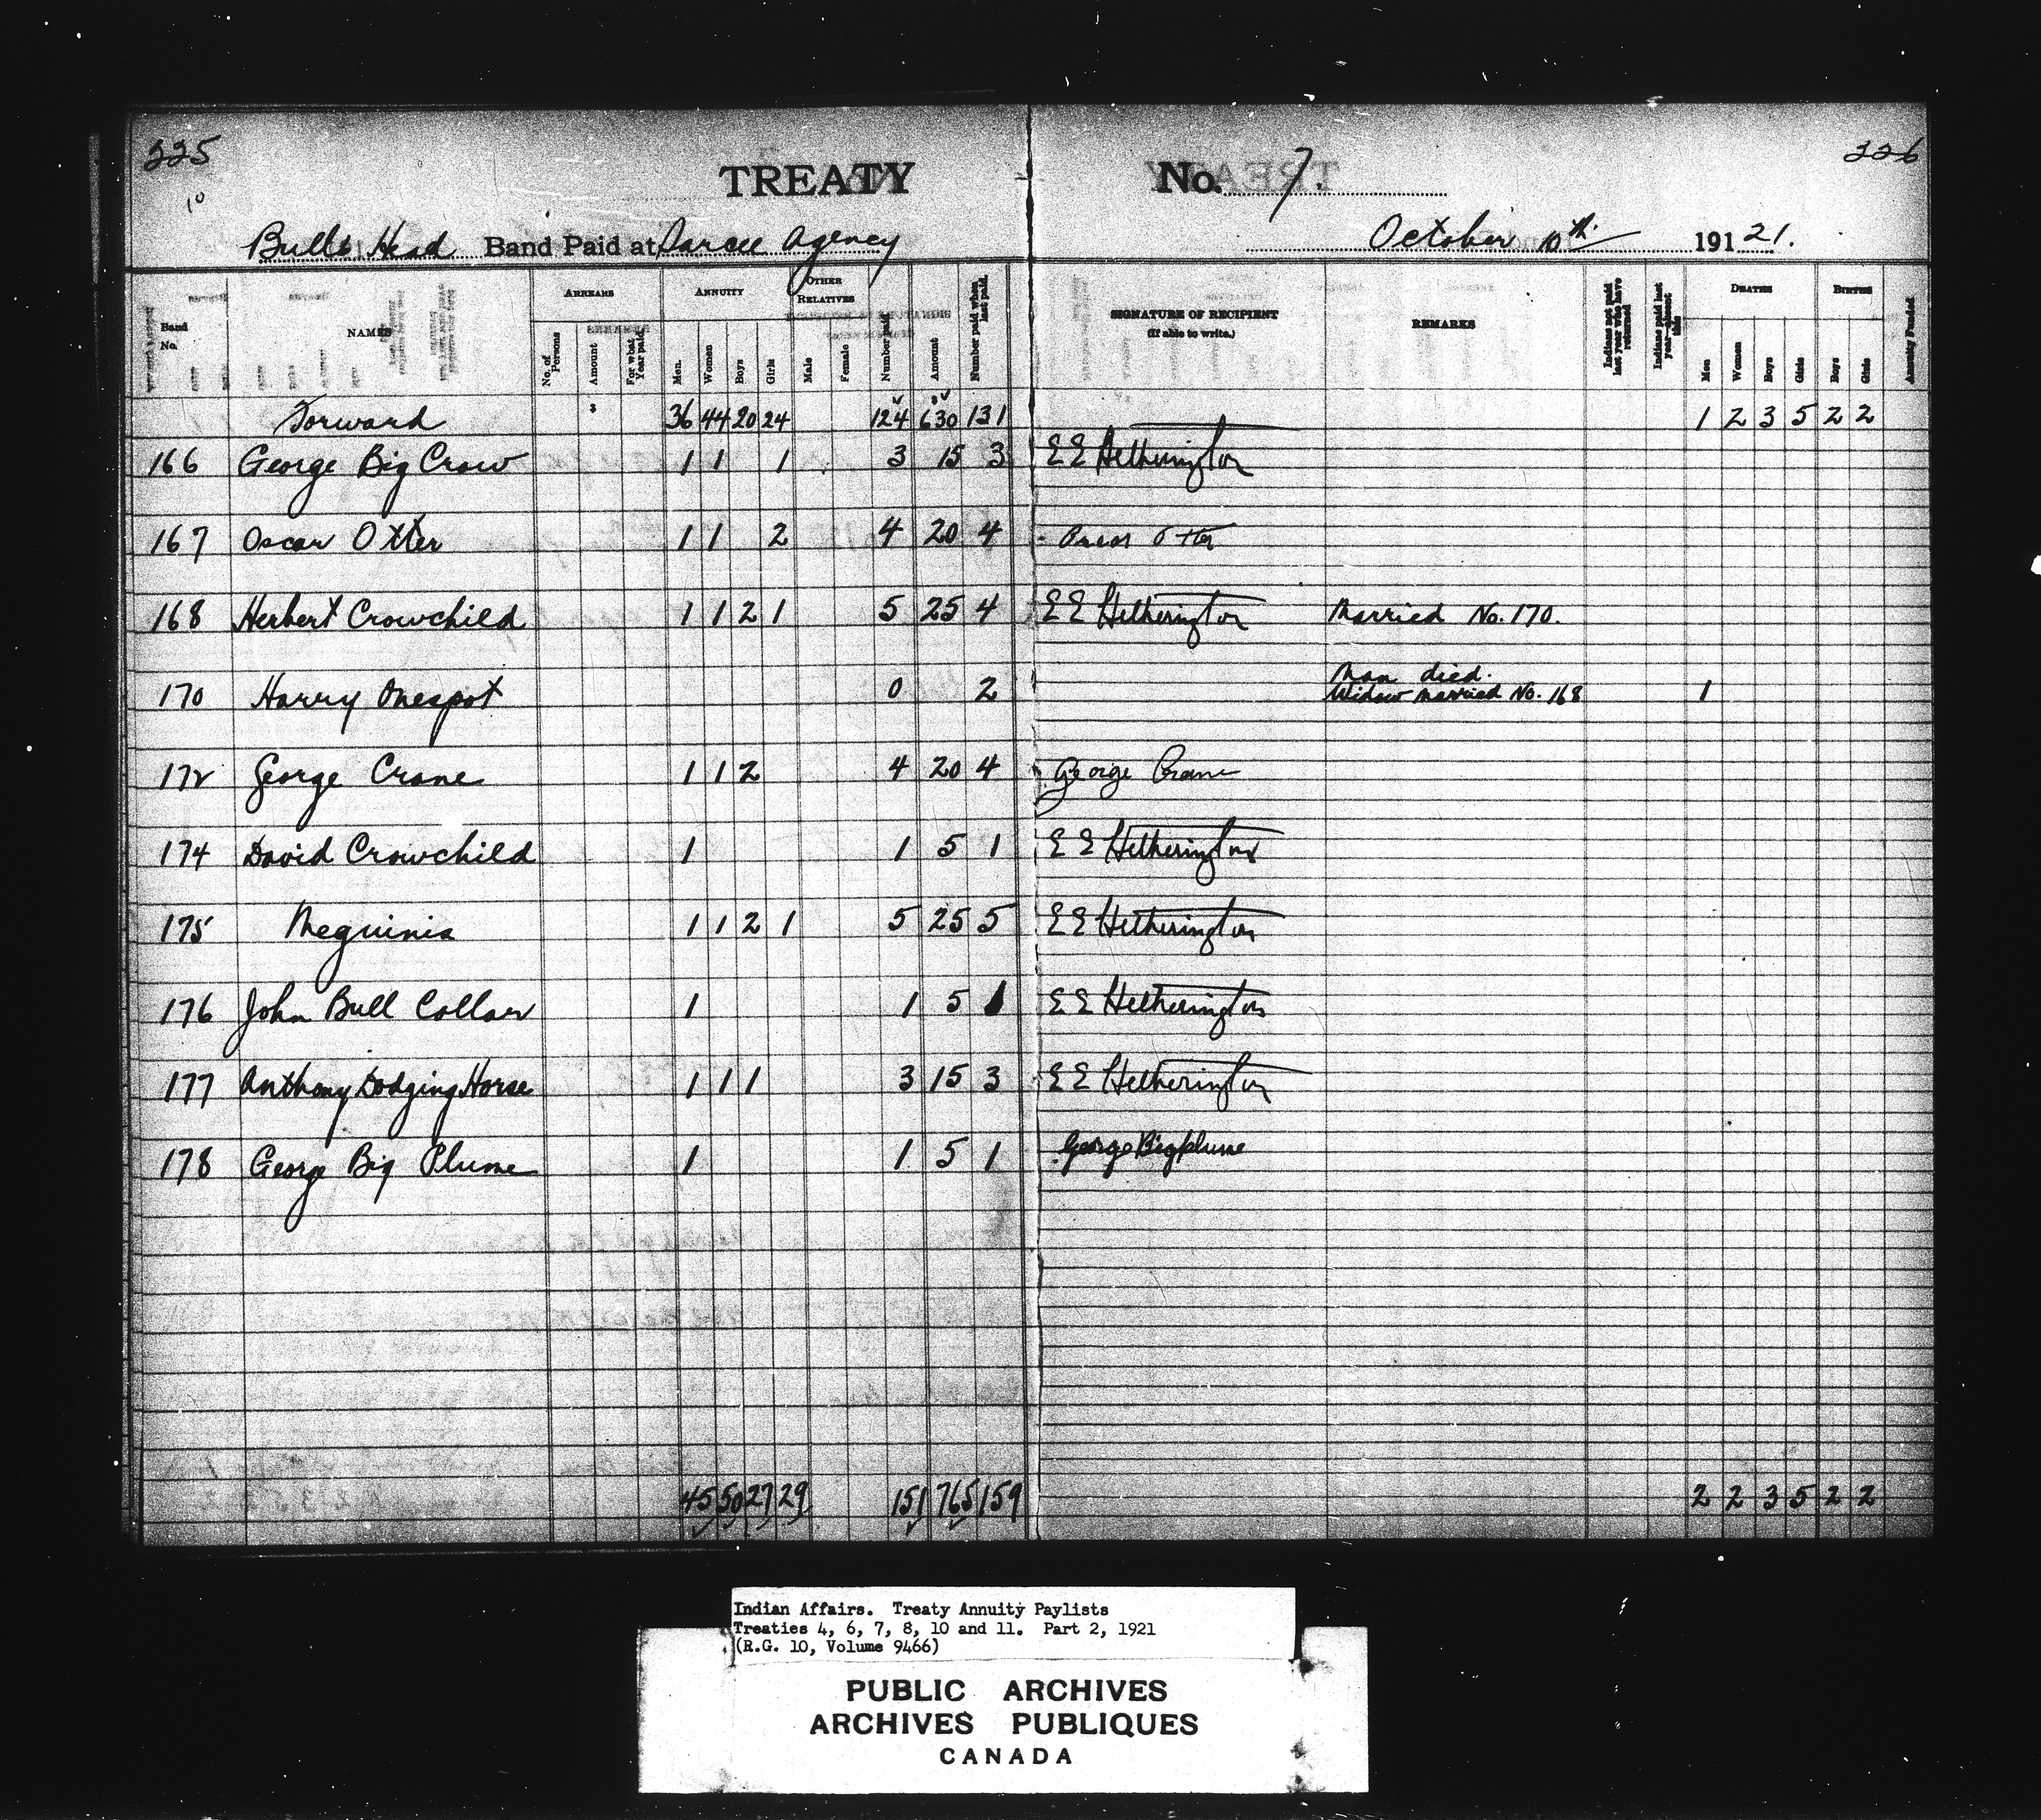 225 226
10
TREATY No. 7.
Bull's Head Band Paid at Sarcee Agency October 10th. 191 21.
Band No. NAMES ARREARS No. of Persons Amount For what Year paid ANNUITY Men. Women Boys Girls OTHER RELATIVES Male Female Number paid Amount Number paid when last paid. SIGNATURE OF RECIPIENT (If able to write.) REMARKS Indians not paid last year who have returned Indians paid last year—absent this DEATHS Men Women Boys Girls BIRTHS Boys Girls Annuity Funded
Forward 36 44 20 24 124 630 131 1 2 3 5 2 2
166 George Big Crow 1 1 1 3 15 3 E E Hetherington
167 Oscar Otter 1 1 2 4 20 4 Oscar Otter
168 Herbert Crowchild 1 1 2 1 5 25 4 E E Hetherington Married No. 170.
170 Harry Onespot 0 2 Man died. Widow married No. 168 1
172 George Crane 1 1 2 4 20 4 George Crane
174 David Crowchild 1 1 5 1 E E Hetherington
175 Meguinis 1 1 2 1 5 25 5 E E Hetherington
176 John Bull Collar 1 1 5 1 E E Hetherington
177 Anthony Dodging Horse 1 1 1 3 15 3 E E Hetherington
178 George Big Plume 1 1 5 1 George Bigplume
45 50 27 29 151 765 159 2 2 3 5 2 2
Indian Affairs. Treaty Annuity Paylists
Treaties 4, 6, 7, 8, 10 and 11. Part 2, 1921
(R.G. 10, Volume 9466)
PUBLIC ARCHIVES
ARCHIVES PUBLIQUES
CANADA